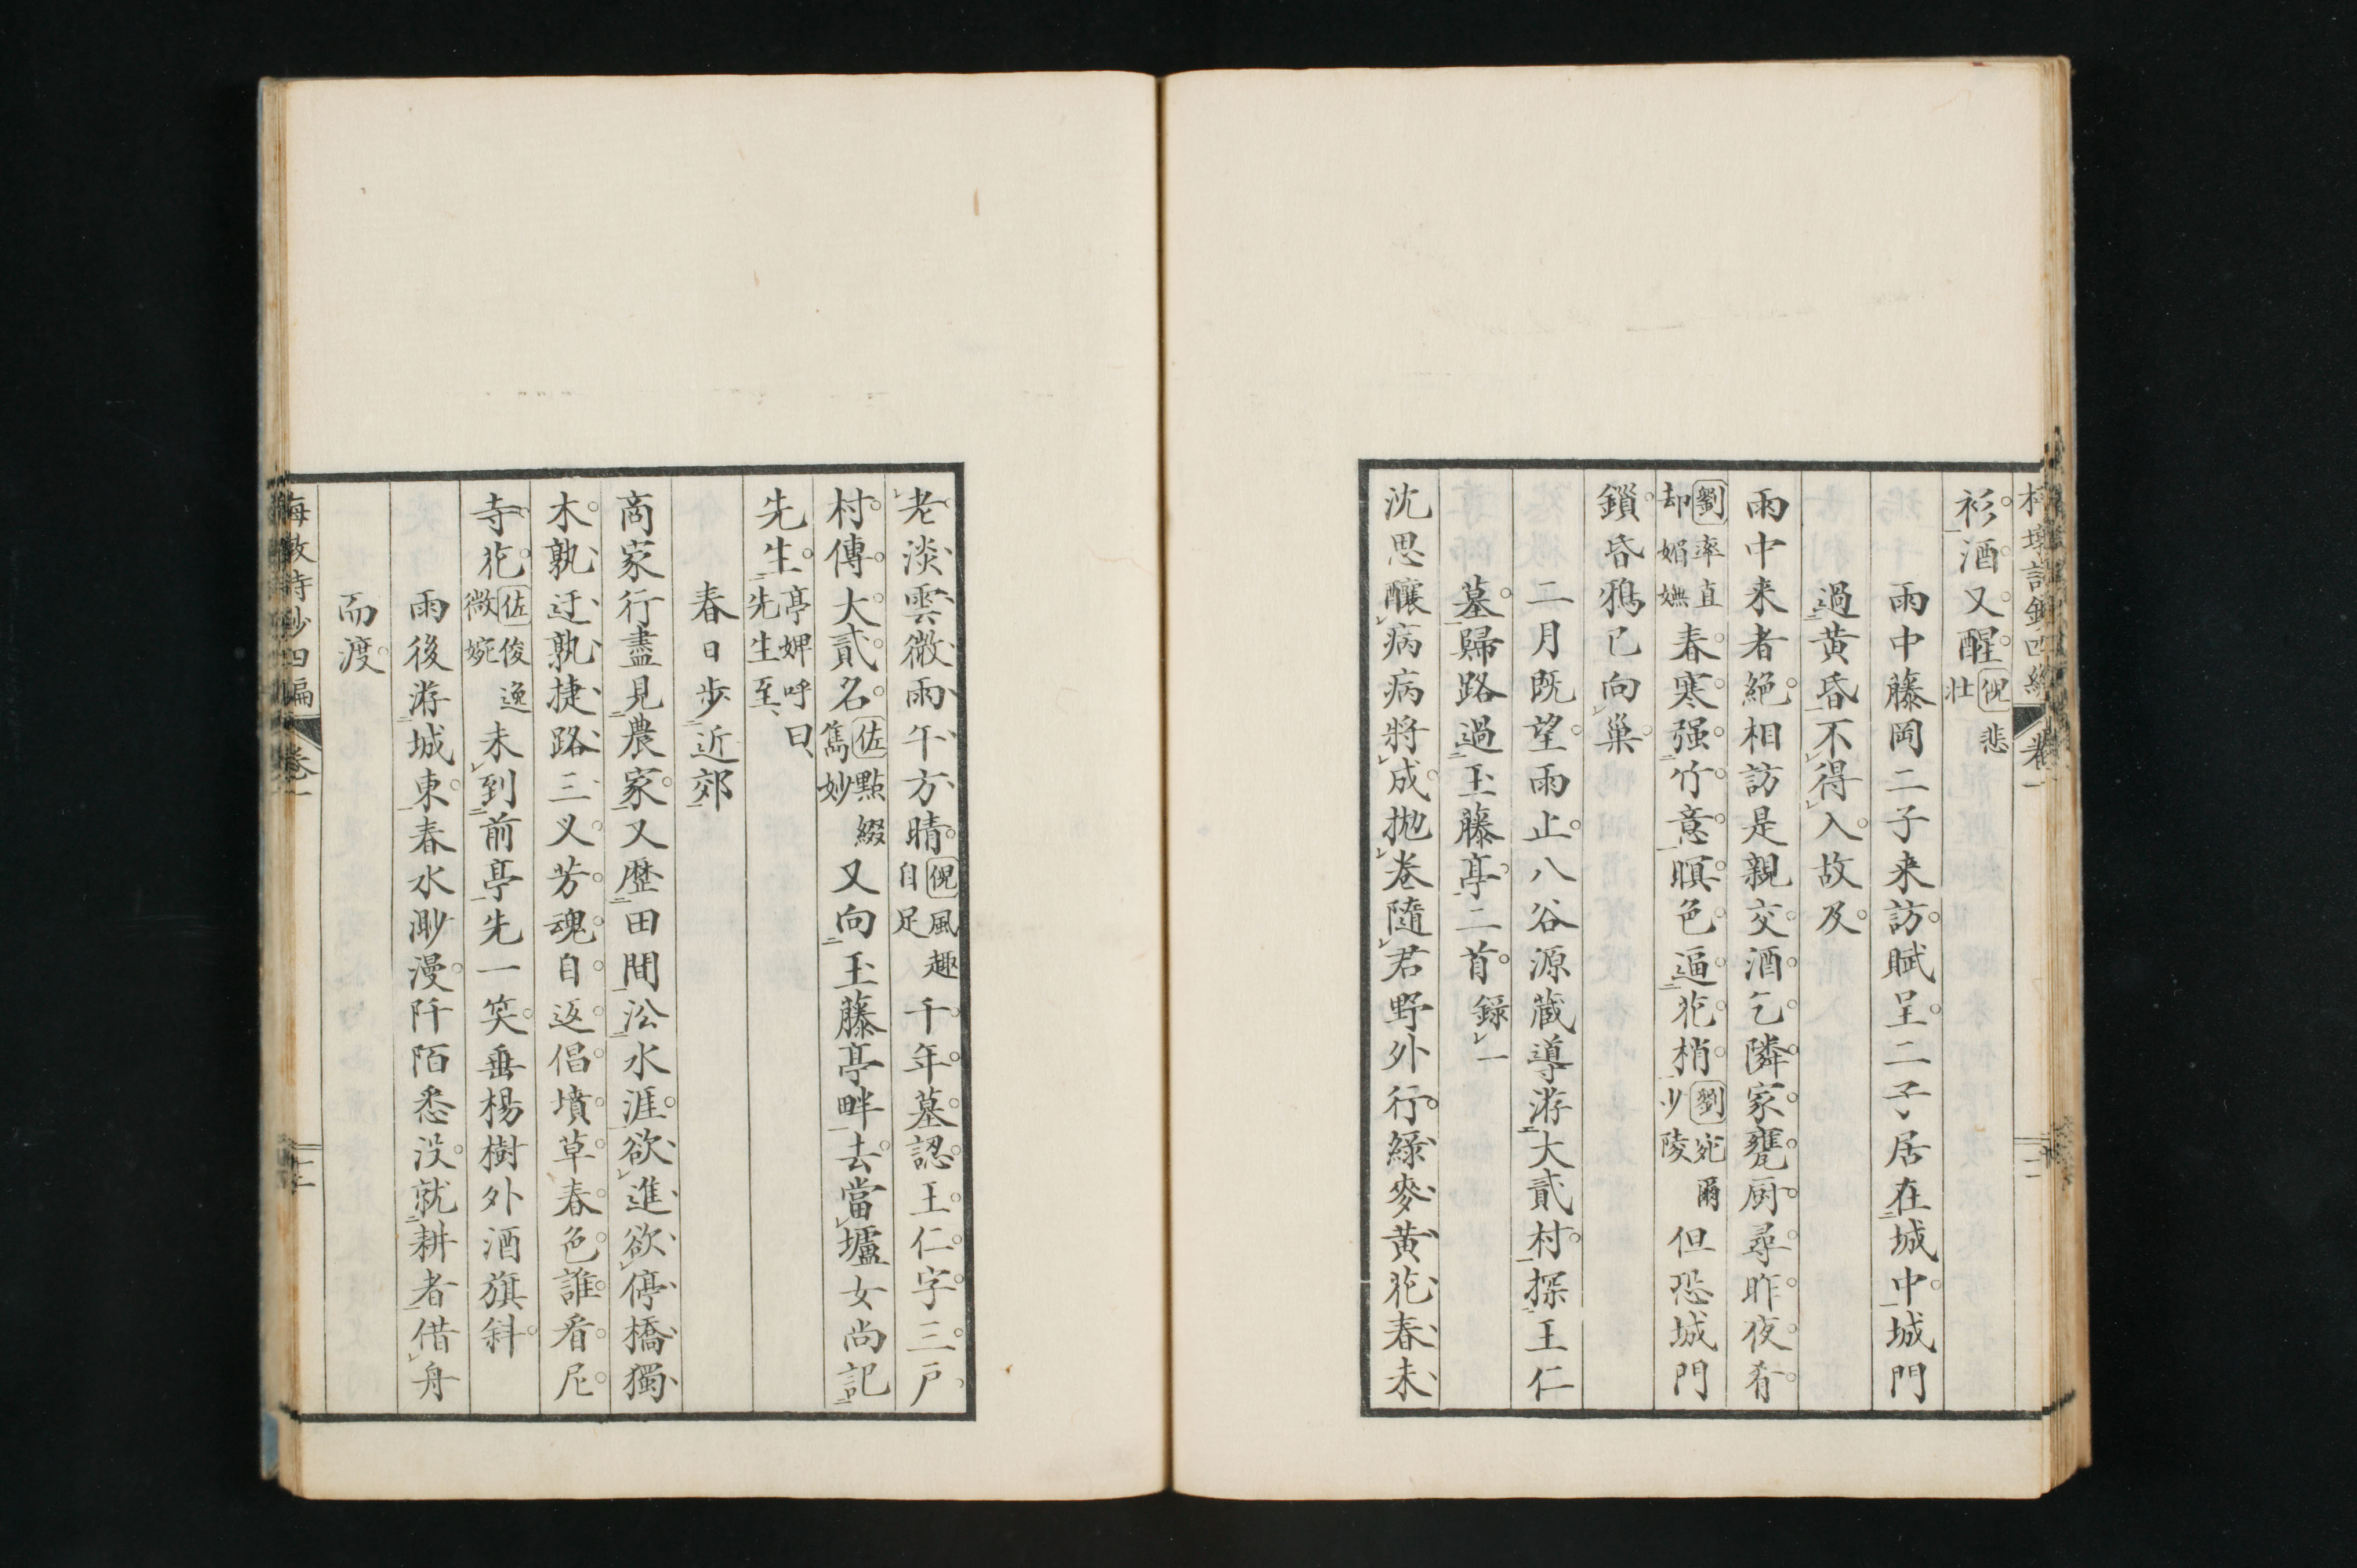 衫酒又醒倪悲壮
雨中藤岡二子来訪賦呈二子居在城中城門
過黄昏不得入故及
雨中来者絶相訪是親交酒乞隣家甕厨尋昨夜肴
劉率直却媚嫵春寒强竹意暝色逼花梢劉宛爾少陵但恐城門
鎖昏鴉已向巢
二月既望雨止八谷源蔵導游大貳村探王仁
墓歸路過玉藤亭二首録一
沈思釀病病將成抛卷隨君野外行緑麥黄花春未
老淡雲微雨午方晴倪風趣自足千年墓認王仁字三戸
村傳大貳名佐點綴雋妙又向玉藤亭畔去當壚女尚記
先生亭婢呼曰先生至
春日步近郊
商家行盡見農家又歷田間㳂水涯欲進欲停橋獨
木孰迂孰捷路三叉芳魂自返倡墳草春色誰看尼
寺花佐俊逸微婉未到前亭先一笑垂楊樹外酒旗斜
雨後游城東春水渺漫阡陌悉没就耕者借舟
而渡
詩鈔四編 卷一